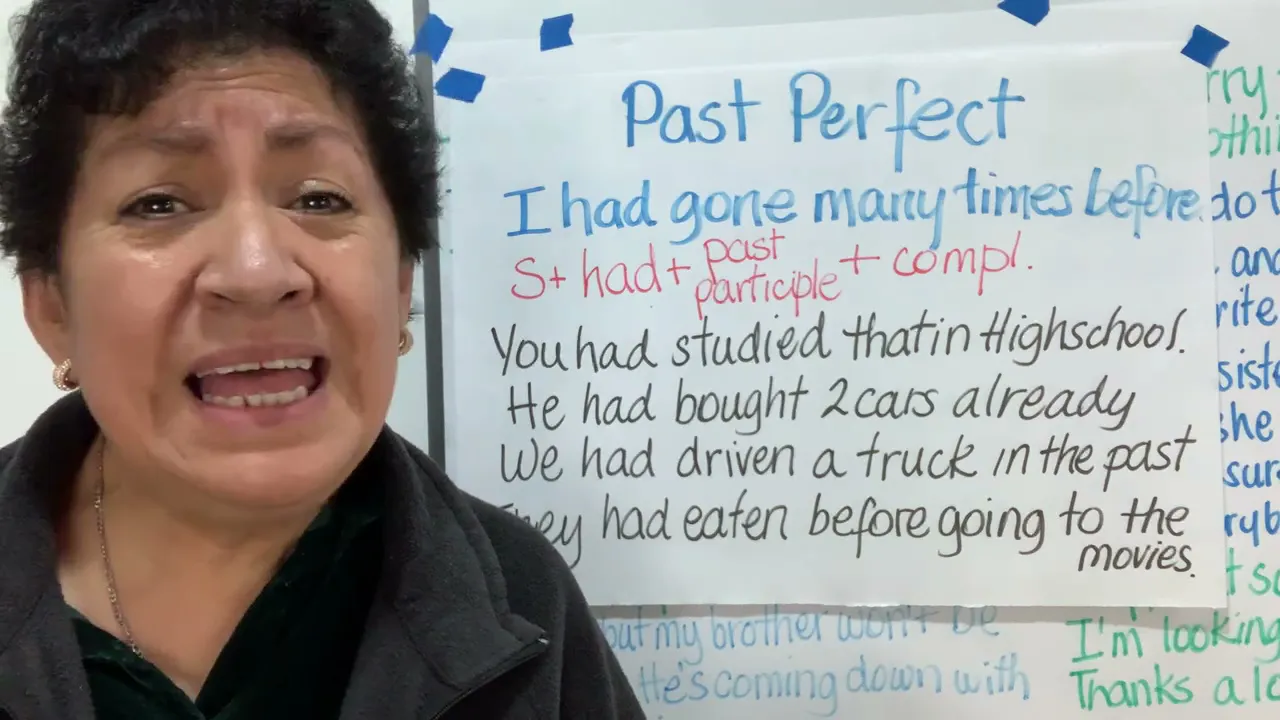 Past Perfect
I had gone many times before.
S + had + past participle + compl.
You had studied that in Highschool.
He had bought 2 cars already
We had driven a truck in the past
They had eaten before going to the
movies.
but my brother won't be
He's coming down with
do t
and
rite
siste
she
sur
ryb
I'm looking
Thanks a lo